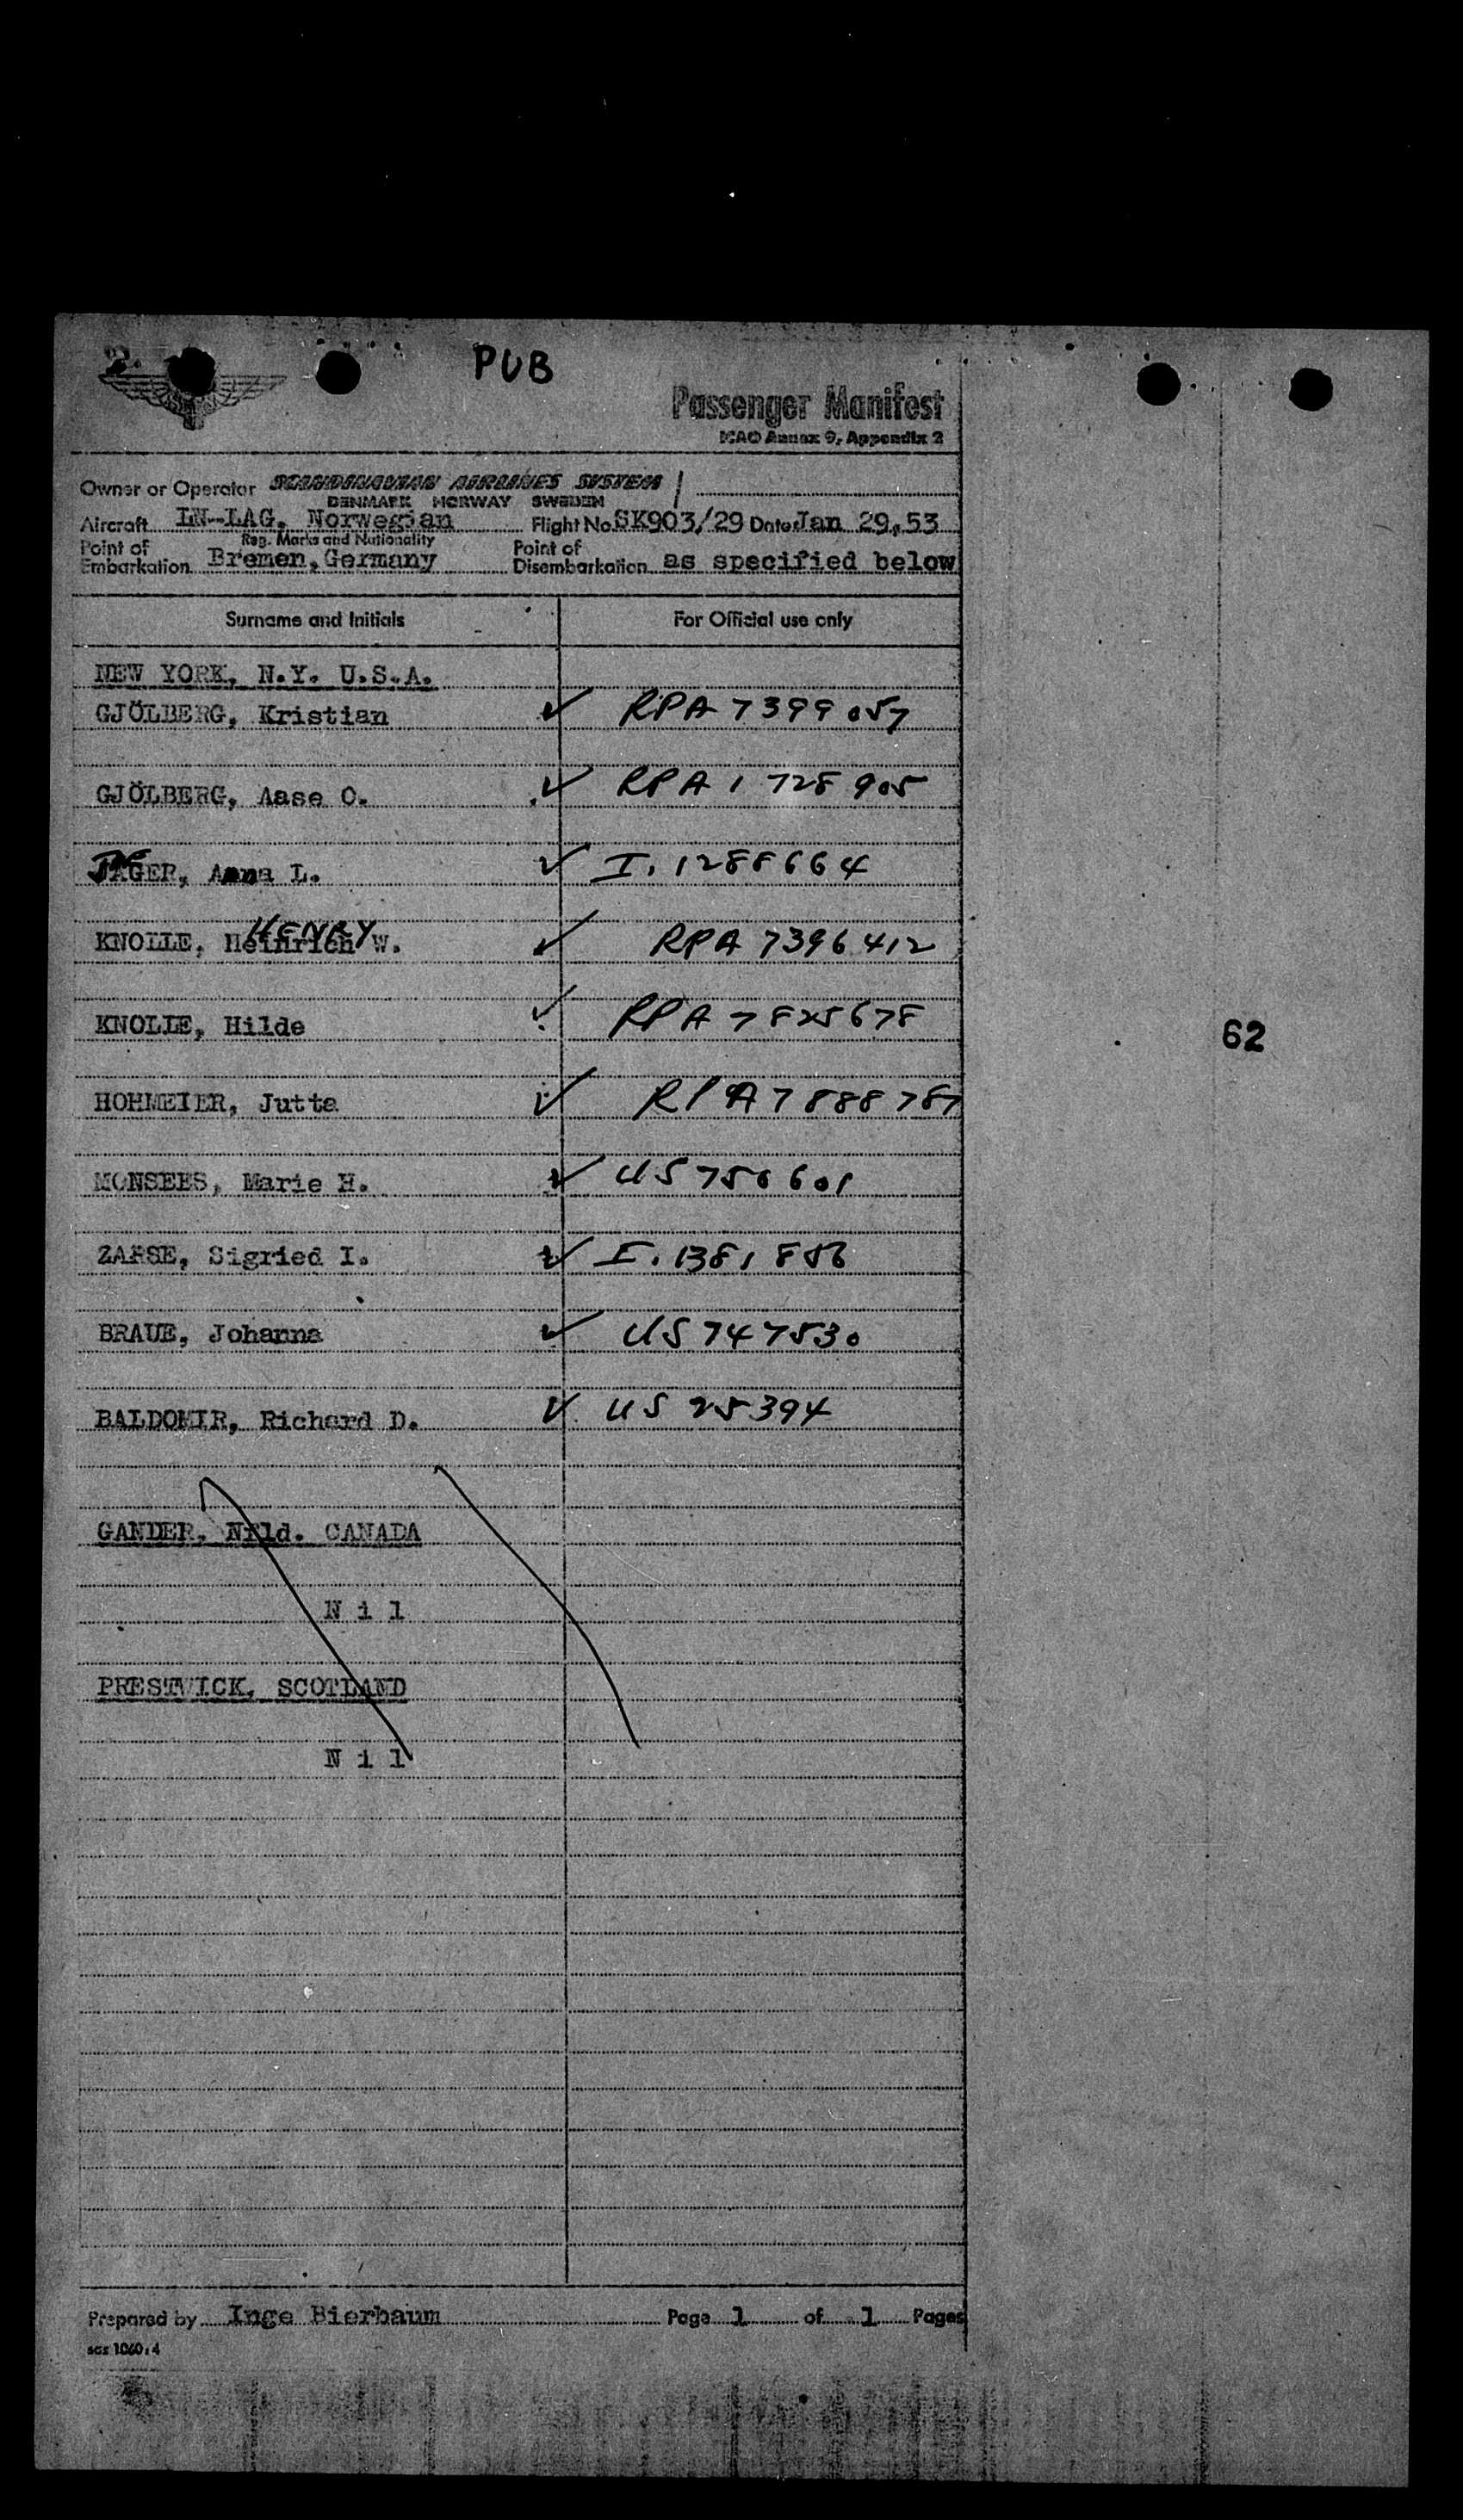 2.
PUB
Passenger Manifest
ICAO Annex 9, Appendix 2
Owner or Operator SCANDINAVIAN AIRLINES SYSTEM
DENMARK NORWAY SWEDEN
Aircraft LN-LAG, Norwegian Flight No. SK903/29 Date Jan 29, 53
Reg. Marks and Nationality
Point of Embarkation Bremen, Germany Point of Disembarkation as specified below
Surname and Initials For Official use only
NEW YORK, N.Y. U.S.A.
GJÖLBERG, Kristian ✓ RPA 7399057
GJÖLBERG, Aase O. ✓ RPA 1728905
GER, Anna L. ✓ I. 1288664
HENRY
KNOLLE, Heinrich W. ✓ RPA 7396412
KNOLLE, Hilde ✓ RPA 7825678
HOHMEIER, Jutta ✓ RPA 7888787
62
MONSEES, Marie H. ✓ US 750601
ZARSE, Sigried I. ✓ I. 1381856
BRAUE, Johanna ✓ US 747530
BALDOMIR, Richard D. ✓ US 25394
GANDER, Nfld. CANADA
Nil
PRESTWICK, SCOTLAND
Nil
Prepared by Inge Bierbaum Page 1 of 1 Pages
sas 1060:4